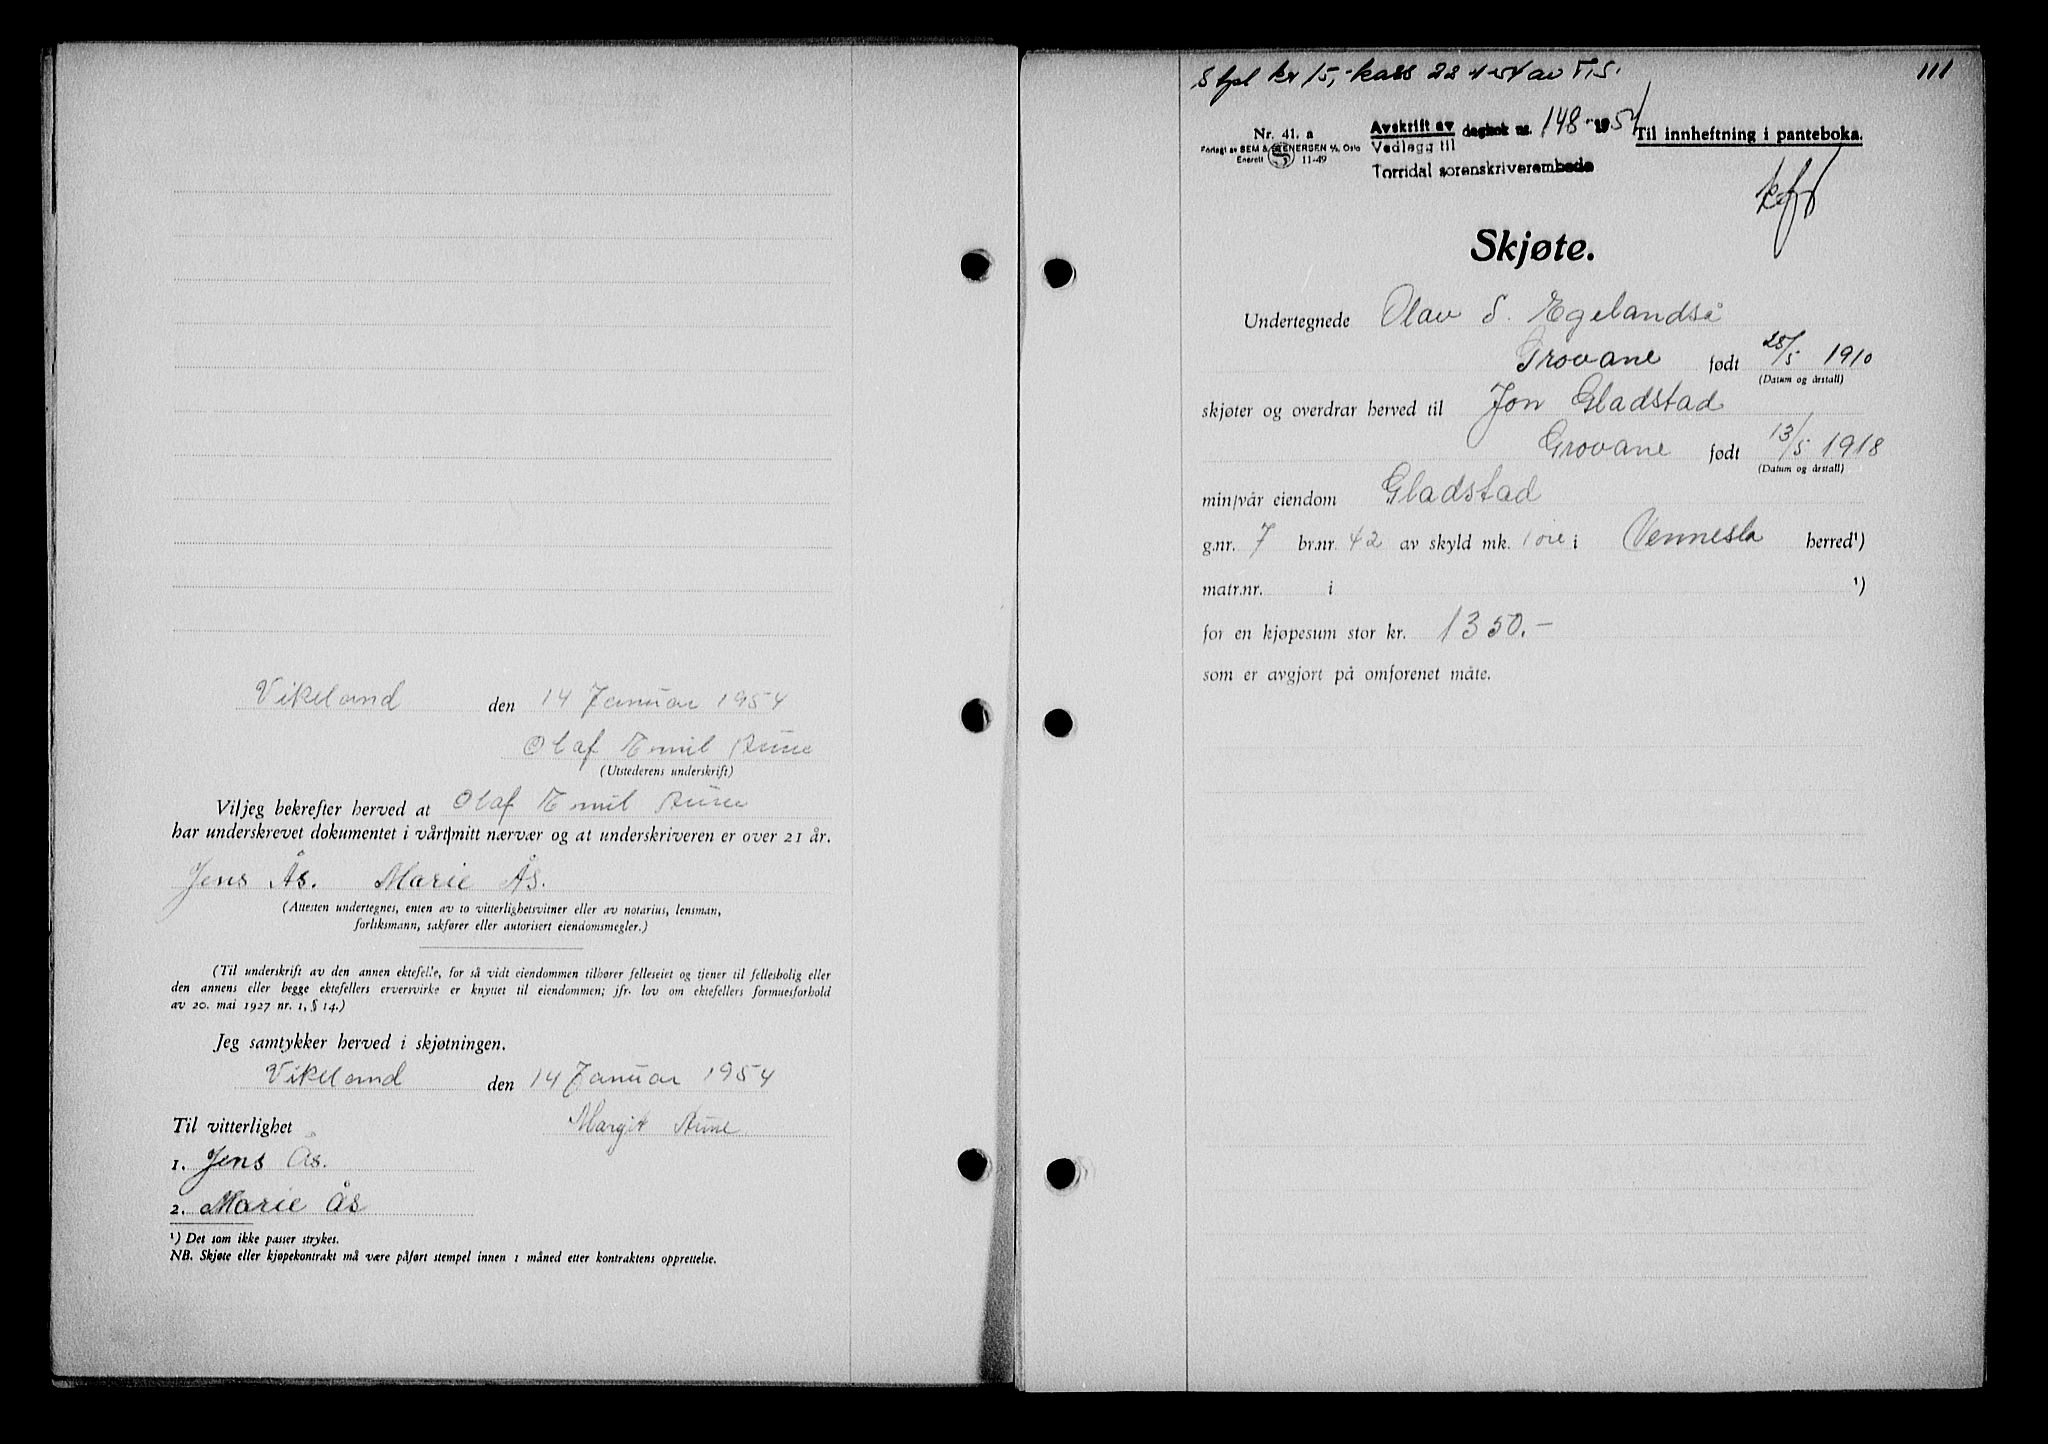 Vikeland den 14 Januar 1954
Olaf Emil Aune
(Utstederens underskrift)
Vi/jeg bekrefter herved at Olaf Emil Aune
har underskrevet dokumentet i vårt/mitt nærvær og at underskriveren er over 21 år.
Jens Ås. Marie Ås.
(Attesten undertegnes, enten av to vitterlighetsvitner eller av notarius, lensman,
forliksmann, sakfører eller autorisert eiendomsmegler.)
(Til underskrift av den annen ektefelle, for så vidt eiendommen tilhører felleseiet og tjener til fellesbolig eller
den annens eller begge ektefellers erversvirke er knyttet til eiendommen; jfr. lov om ektefellers formuesforhold
av 20. mai 1927 nr. 1, § 14.)
Jeg samtykker herved i skjøtningen.
Vikeland den 14 Januar 1954
Til vitterlighet Margit Aune
1. Jens Ås.
2. Marie Ås
¹) Det som ikke passer strykes.
NB. Skjøte eller kjøpekontrakt må være påført stempel innen 1 måned etter kontraktens opprettelse.
Stpl kr 15,- kass 22 4-54 av T.S. 111
Nr. 41. a
Forlagt av SEM & STENERSEN A/S, Oslo
Enerett S 11-49
Avskrift av dagbok nr. 148 - 1954
Vedlegg til
Torridal sorenskriverembede
Til innheftning i panteboka.
Skjøte.
Undertegnede Olav S. Egelandså
Grovane født 28/5 1910
(Datum og årstall)
skjøter og overdrar herved til Jon Gladstad
Grovane født 13/5 1918
(Datum og årstall)
min/vår eiendom Gladstad
g.nr. 7 br.nr. 42 av skyld mk. 1 øre i Vennesla herred¹)
matr.nr. i ¹)
for en kjøpesum stor kr. 1350.-
som er avgjort på omforenet måte.